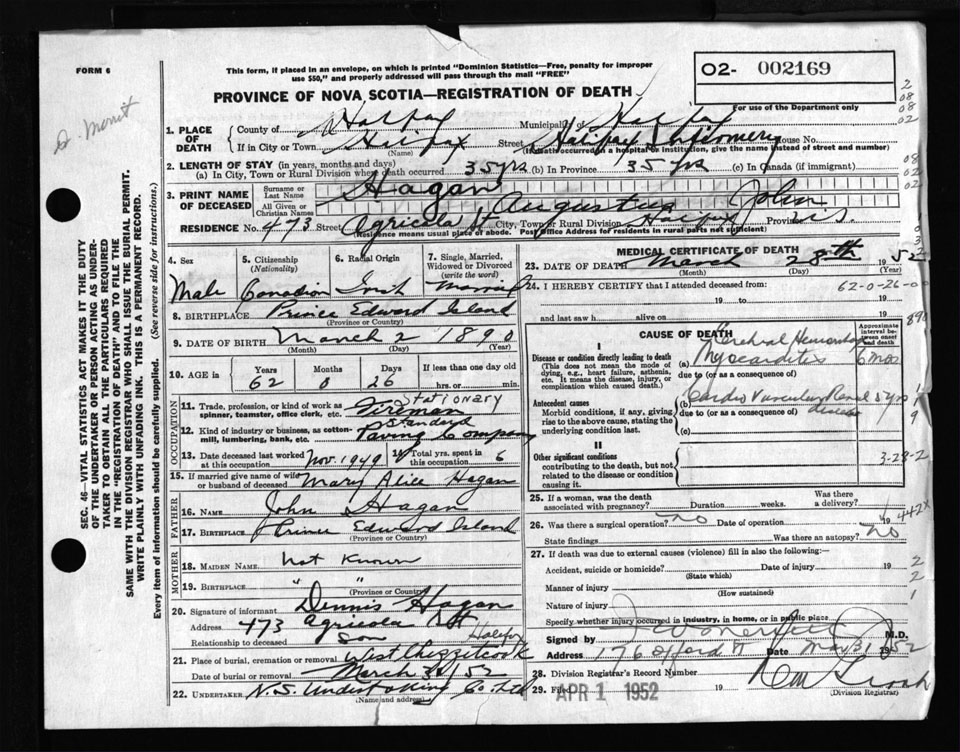 FORM 6
This form, if placed in an envelope, on which is printed "Dominion Statistics—Free, penalty for improper
use $50," and properly addressed will pass through the mail "FREE"
02- 002169
For use of the Department only
PROVINCE OF NOVA SCOTIA—REGISTRATION OF DEATH
1. PLACE OF DEATH
County of Halifax Municipality of Halifax
If in City or Town Halifax Street Halifax Infirmary House No.
(Name) (If death occurred in a hospital or institution, give the name instead of street and number)
2. LENGTH OF STAY (in years, months and days)
(a) In City, Town or Rural Division where death occurred 35 yrs (b) In Province 35 yrs (c) In Canada (if immigrant)
3. PRINT NAME OF DECEASED
Surname or Last Name Hagan
All Given or Christian Names Augustus John
RESIDENCE No. 473 Street Agricola St City, Town or Rural Division Halifax Province N.S.
(Residence means usual place of abode. Post Office Address for residents in rural parts not sufficient)
4. Sex 5. Citizenship (Nationality) 6. Racial Origin 7. Single, Married, Widowed or Divorced (write the word)
Male Canadian Irish Married
8. BIRTHPLACE Prince Edward Island
(Province or Country)
9. DATE OF BIRTH March 2 1890
(Month) (Day) (Year)
10. AGE in Years Months Days If less than one day old
62 0 26 hrs. or min.
OCCUPATION
11. Trade, profession, or kind of work as spinner, teamster, office clerk, etc. Stationary Fireman
12. Kind of industry or business, as cotton-mill, lumbering, bank, etc. Standard Paving Company
13. Date deceased last worked at this occupation Nov. 1949 14 Total yrs. spent in this occupation 6
15. If married give name of wife or husband of deceased Mary Alice Hagan
FATHER
16. NAME John Hagan
17. BIRTHPLACE Prince Edward Island
(Province or Country)
MOTHER
18. MAIDEN NAME Not Known
19. BIRTHPLACE " "
(Province or Country)
20. Signature of informant Dennis Hagan
Address 473 Agricola St Halifax
Relationship to deceased Son
21. Place of burial, cremation or removal West Chezzetcook
Date of burial or removal March 31/52
22. UNDERTAKER N.S. Undertaking Co. Ltd
(Name and address)
MEDICAL CERTIFICATE OF DEATH
23. DATE OF DEATH March 28th 1952
(Month) (Day) (Year)
24. I HEREBY CERTIFY that I attended deceased from:
62-0-26-0
19 to 19
and last saw h alive on 19
890
CAUSE OF DEATH
Approximate interval between onset and death
I
Disease or condition directly leading to death
(This does not mean the mode of dying, e.g., heart failure, asthenia, etc. It means the disease, injury, or complication which caused death.)
Cerebral Hemorrhage
(a) Myocarditis 6 mos
due to (or as a consequence of)
Antecedent causes
Morbid conditions, if any, giving rise to the above cause, stating the underlying condition last.
(b) Cardio Vascular Renal disease 5 yrs
due to (or as a consequence of)
(c)
II
Other significant conditions
contributing to the death, but not related to the disease or condition causing it.
3-28-2
25. If a woman, was the death associated with pregnancy? Duration weeks. Was there a delivery?
26. Was there a surgical operation? no Date of operation 19
442X
State findings Was there an autopsy? no
27. If death was due to external causes (violence) fill in also the following:—
Accident, suicide or homicide? Date of injury 19
(State which)
Manner of injury
(How sustained)
Nature of injury
Specify whether injury occurred in industry, in home, or in public place
Signed by M.D.
Address 176 Date Mar 31 1952
28. Division Registrar's Record Number
29. Filed APR 1 1952
(Division Registrar)
SEC. 46—VITAL STATISTICS ACT MAKES IT THE DUTY
OF THE UNDERTAKER OR PERSON ACTING AS UNDER-
TAKER TO OBTAIN ALL THE PARTICULARS REQUIRED
IN THE "REGISTRATION OF DEATH" AND TO FILE THE
SAME WITH THE DIVISION REGISTRAR WHO SHALL ISSUE THE BURIAL PERMIT.
WRITE PLAINLY WITH UNFADING INK. THIS IS A PERMANENT RECORD.
Every item of information should be carefully supplied. (See reverse side for instructions.)